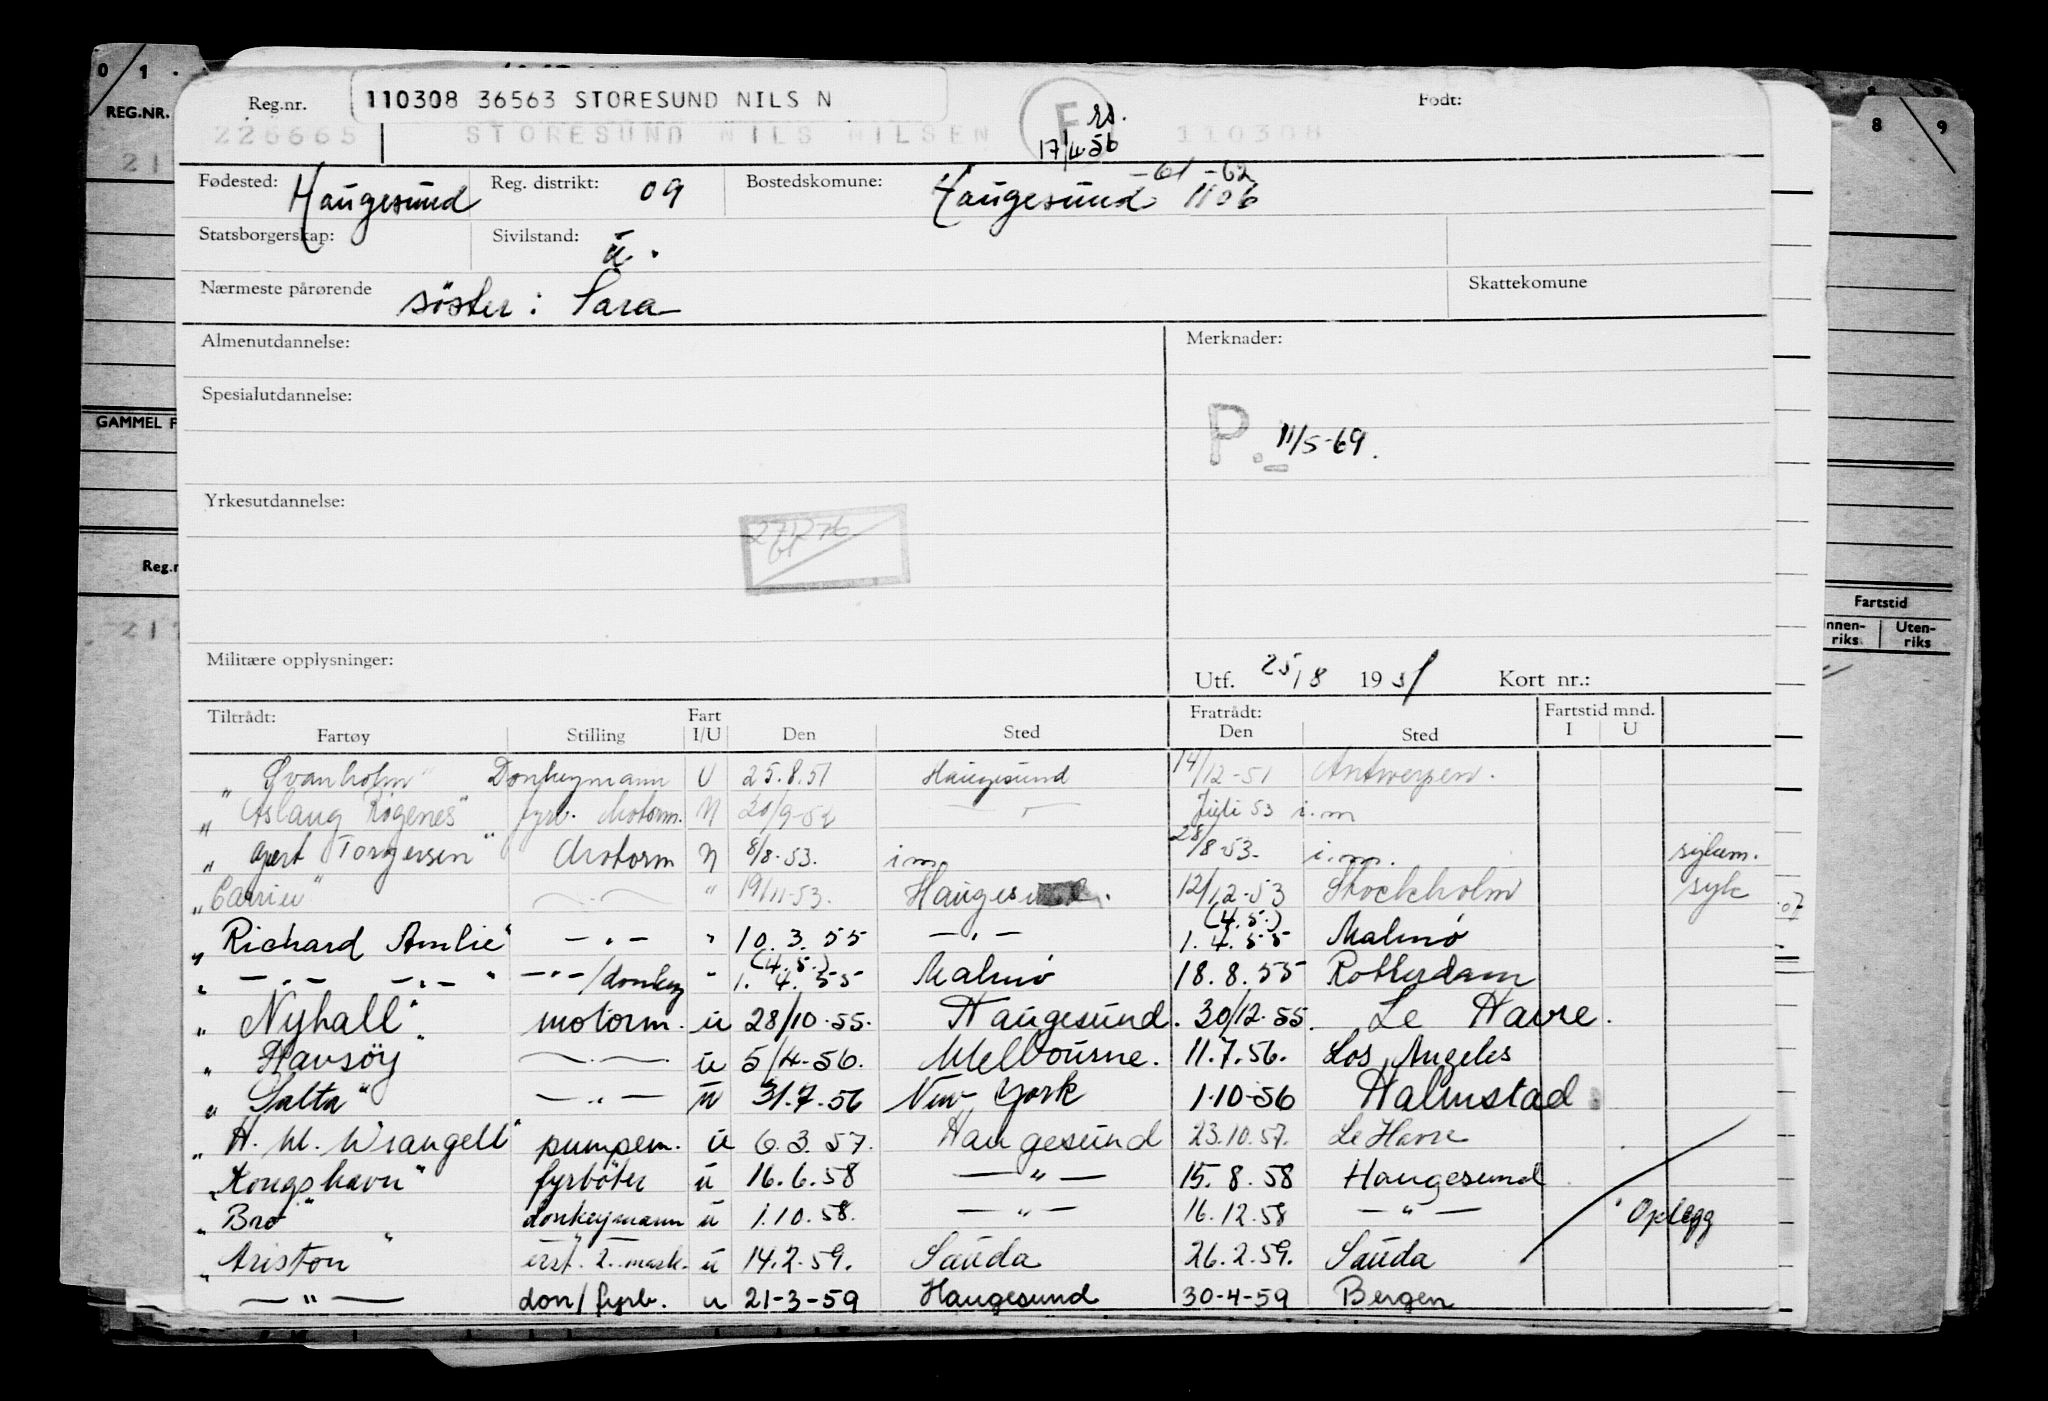 0 1 .
REG.NR.
Reg.nr. 110308 36563 STORESUND NILS N
F
rs.
Født:
226665 STORESUND NILS NILSEN 110308
17/4 56
8 9
Fødested: Haugesund Reg. distrikt: 09 Bostedskomune: Haugesund 1106
-61 -62
Statsborgerskap: Sivilstand: u.
Nærmeste pårørende søster: Sara Skattekomune
Almenutdannelse: Merknader:
Spesialutdannelse:
GAMMEL F
P. 11/5-69.
Yrkesutdannelse:
Reg.n
Fartstid
Innen-riks. Uten-riks
Militære opplysninger:
Utf. 25/8 1951 Kort nr.:
Tiltrådt: Fart Fratrådt: Fartstid mnd.
Fartøy Stilling I/U Den Sted Den Sted I U
"Svanholm" Donkeymann U 25.8.51 Haugesund 14/12-51 Antwerpen.
"Aslaug Røgenes" fyrb. Motorm. N 20/9-52 — " — Juli 53 i.m
" Gert Torgersen " Motorm N 8/8-53. i m 28/8-53. i.m. sykem.
"Carrier" — " — " 19/11-53. Haugesund. 12/12-53 Stockholm syk
"Richard Amlie" — " — " 10.3.55 — " — (4.5.) 1.4.55 Malmö
" — " — — " — " — " — /donkey " (4.5.) 1.4.55 Malmö 18.8.55 Rotterdam
"Nyhall" motorm. u 28/10-55. Haugesund. 30/12-55. Le Havre.
" Havsøy — " — u 5/4-56. Melbourne. 11.7.56. Los Angeles
"Salta" — " — u 31.7.56 New York 1-10-56 Halmstad
"H. M. Wrangell" pumpem. u 6.3.57. Haugesund 23.10.57. Le Havre
"Kongshavn" fyrbøter u 16.6.58 — " — 15.8.58 Haugesund
"Bro" donkeymann u 1.10.58. — " — 16.12.58 — " — Oplegg
"Ariston" erst. 2. mask. u 14.2.59. Sauda 26.2.59. Sauda
— " — don/fyrb. u 21-3-59 Haugesund 30-4-59 Bergen